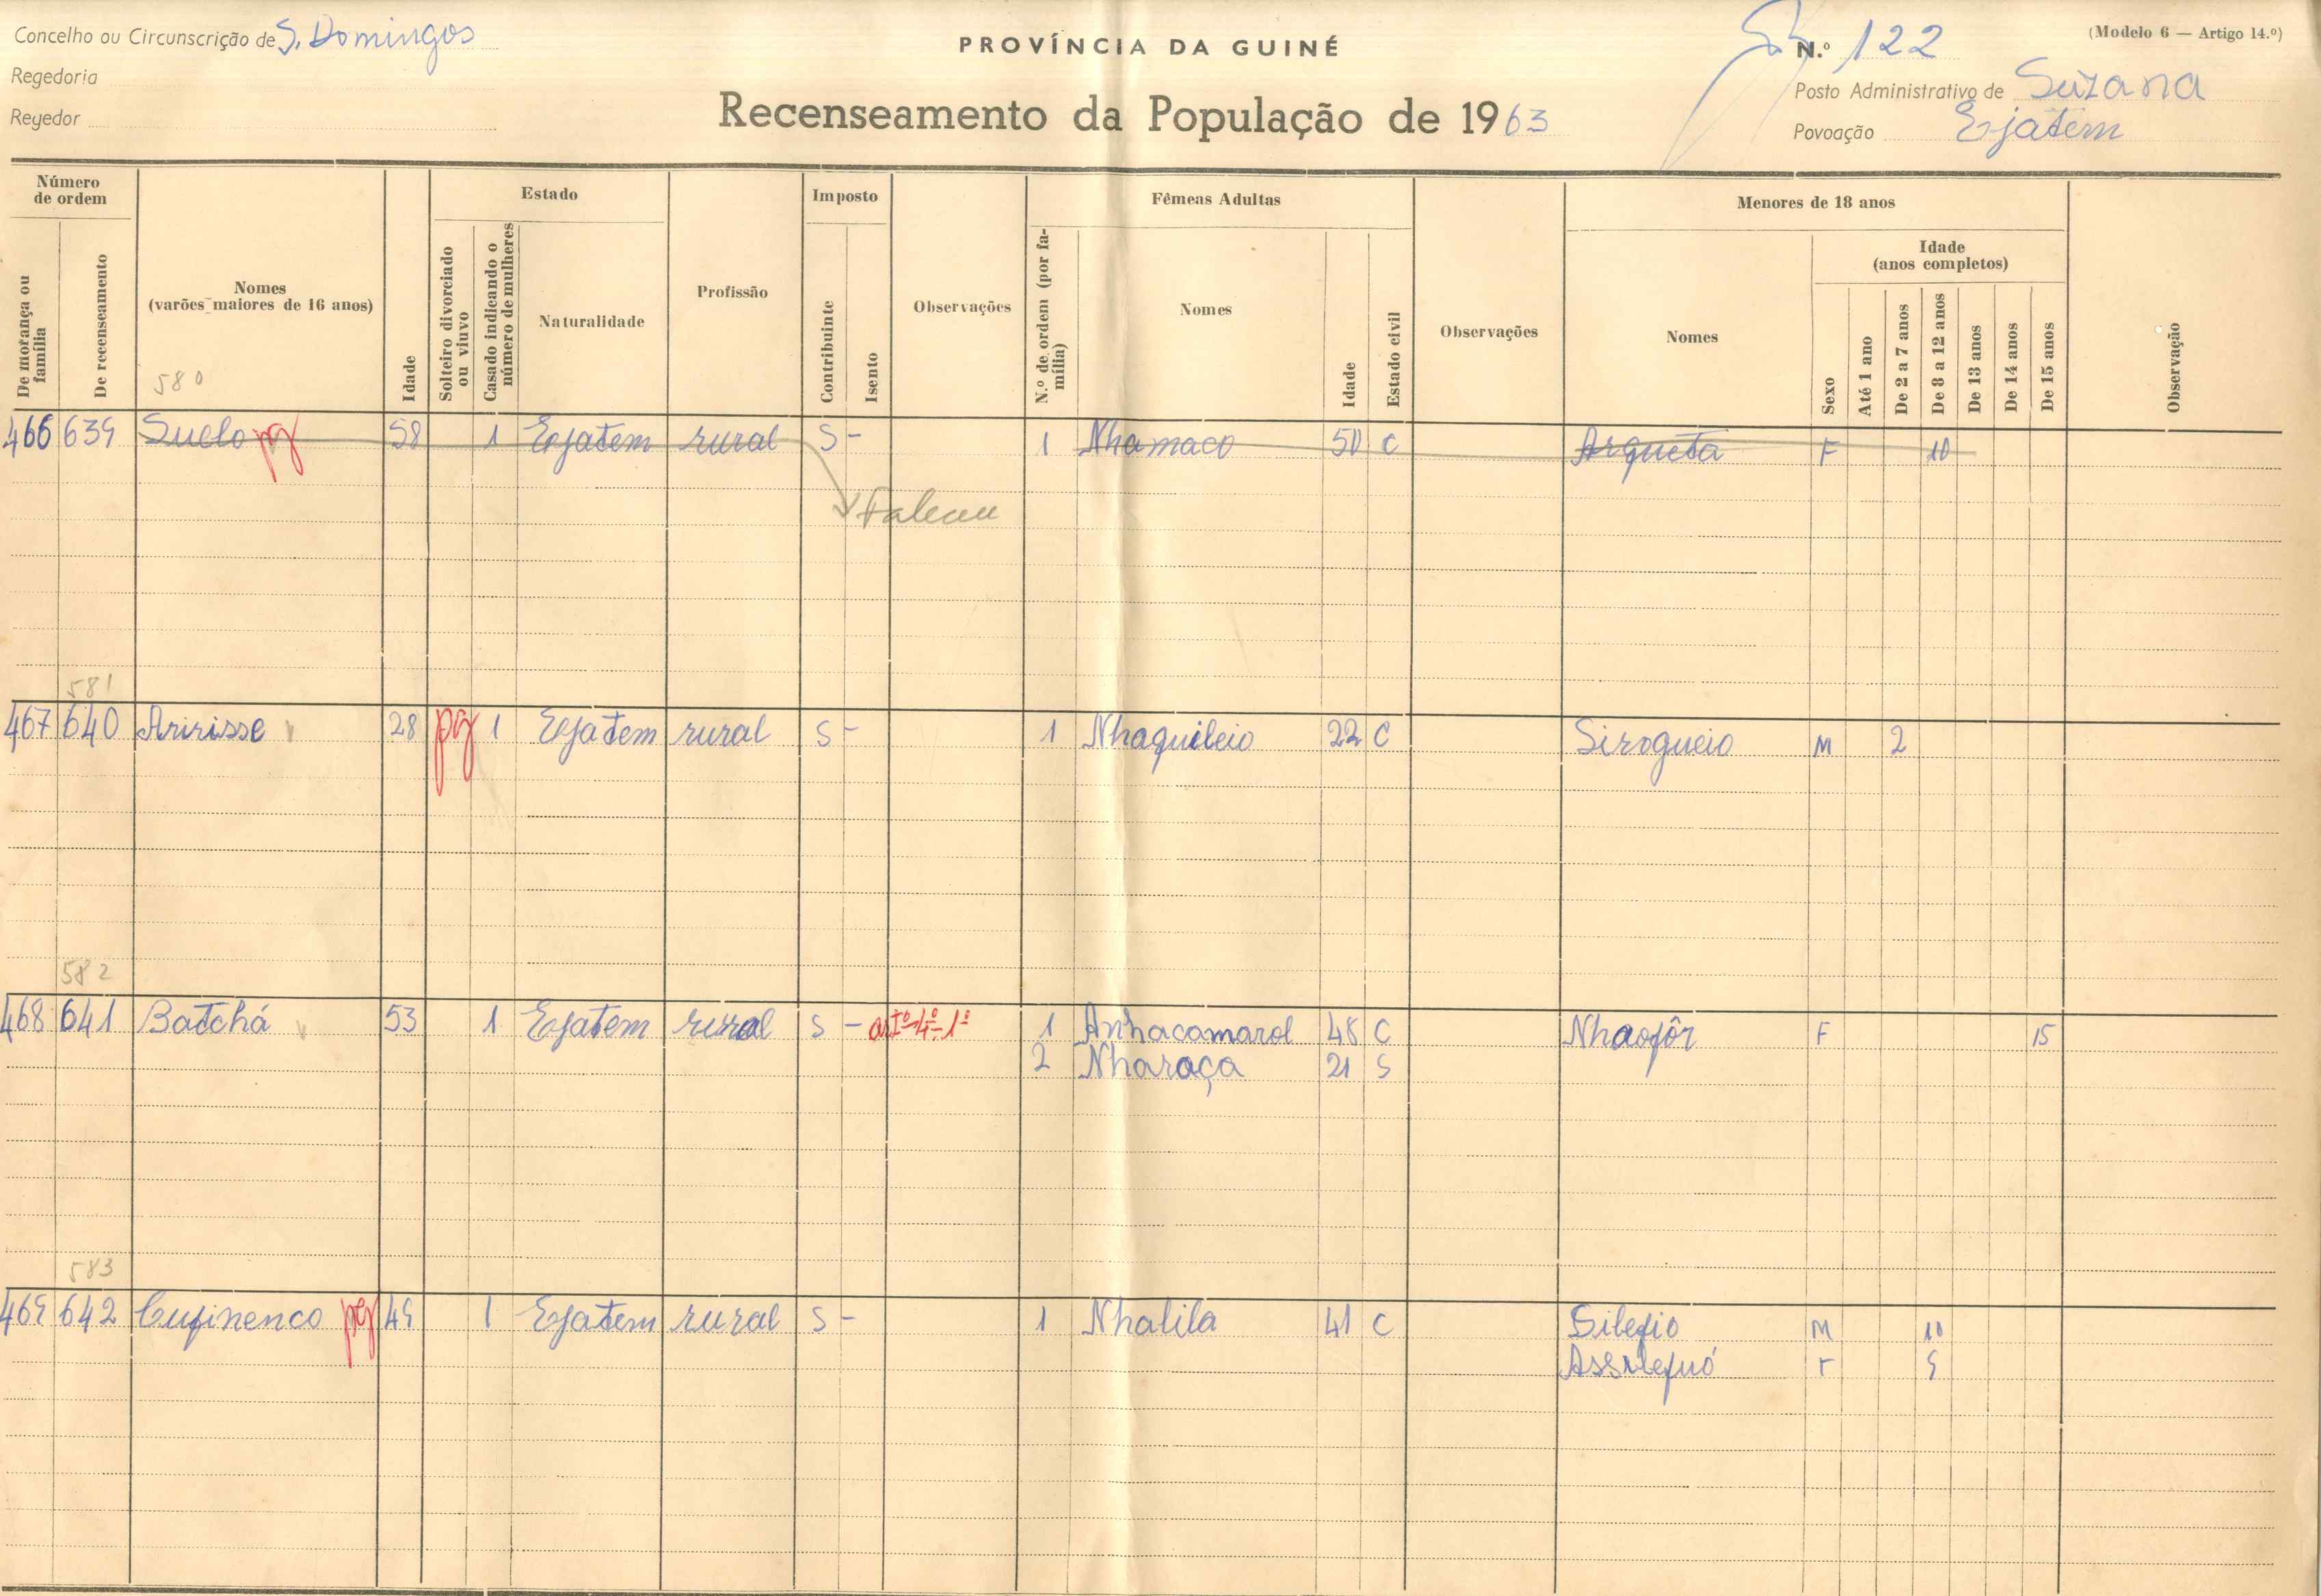 Concelho ou Circunscrição de S. Domingos
PROVÍNCIA DA GUINÉ
N.º 122
(Modelo 6 — Artigo 14.º)
Regedoria
Posto Administrativo de Suzana
Reyedor
Recenseamento da População de 1963
Povoação Ejatem
Número de ordem
De morança ou família
De recenseamento
Nomes (varões maiores de 16 anos)
580
Idade
Estado
Solteiro divorciado ou viuvo
Casado indicando o número de mulheres
Naturalidade
Profissão
Imposto
Contribuinte
Isento
Observações
Fêmeas Adultas
N.º de ordem (por família)
Nomes
Idade
Estado civil
Observações
Menores de 18 anos
Nomes
Sexo
Idade (anos completos)
Até 1 ano
De 2 a 7 anos
De 8 a 12 anos
De 13 anos
De 14 anos
De 15 anos
Observação
466 639 Suelo pg 58 1 Ejatem rural S - 1 Nhamaco 50 C Arqueta F 10
581
467 640 Aririsse 28 pg 1 Ejatem rural S - 1 Nhaquileio 22 C Sirogueio M 2
582
468 641 Batchá 53 1 Ejatem rural S - artº 4º 1º 1 Anhacamarol 48 C Nhaofôr F 15
2 Nharaça 21 S
583
469 642 Cufinenco pg 49 1 Ejatem rural S - 1 Nhalila 41 C Silefio M 10
F 9